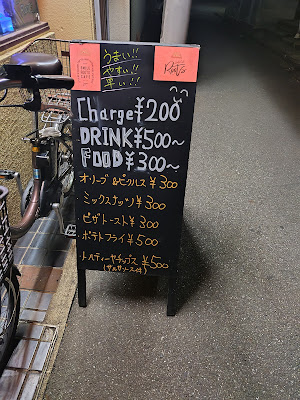 うまい!!
やすい!!
早い!!
Charge¥200
DRINK¥500~
FOOD¥300~
オリーブ&ピクルス¥300
ミックスナッツ¥300
ピザトースト¥300
ポテトフライ¥500
トルティーヤチップス¥500
(サルサソース付)